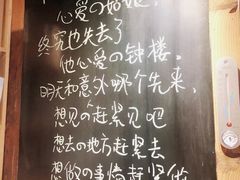 心爱的姑娘，
终究也失去了
他心爱的钟楼。
明天和意外哪个先来，
想见的赶紧见吧
想去的地方赶紧去
想做的事情赶紧做